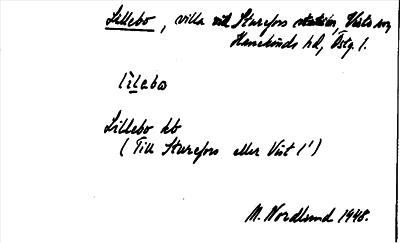 Lillebo, villa vid Sturefors station, Vists sn,
Hanekinds hd, Östg. l.
lìlebω
Lillebo hb
(Till Sturefors eller Vist 1')
M. Nordlund 1948.